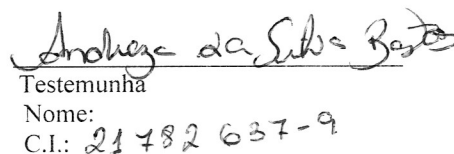 Andreza da Silva Bastos
Testemunha
Nome:
C.I.: 21 782 637-9